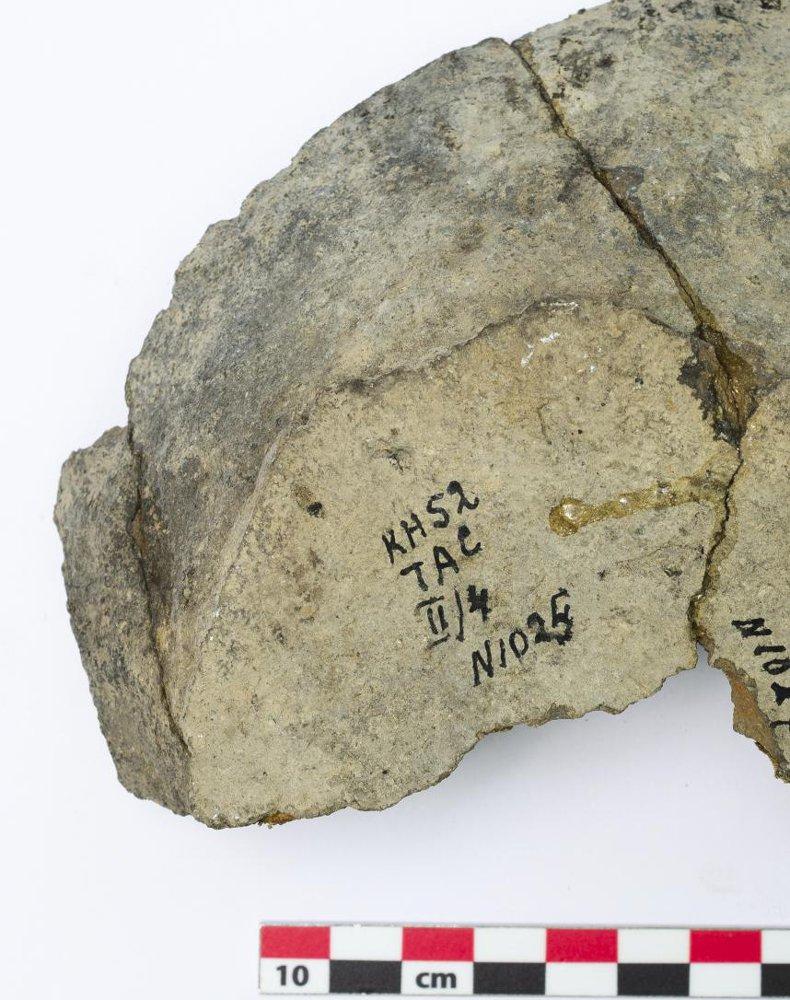 KH52
TAC
II/4
N1025
N102
10 cm